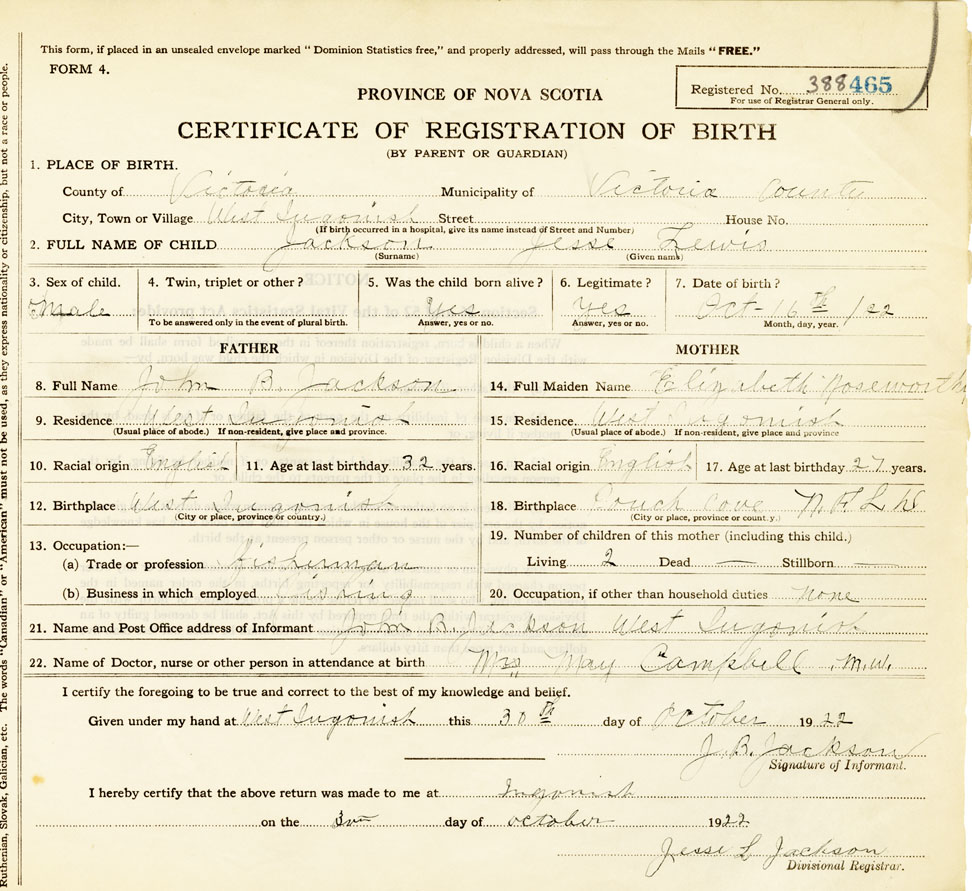 This form, if placed in an unsealed envelope marked "Dominion Statistics free," and properly addressed, will pass through the Mails "FREE."
FORM 4.
Registered No. 388465
For use of Registrar General only.
PROVINCE OF NOVA SCOTIA
CERTIFICATE OF REGISTRATION OF BIRTH
(BY PARENT OR GUARDIAN)
1. PLACE OF BIRTH.
County of Victoria Municipality of Victoria County
City, Town or Village West Ingonish Street House No.
(If birth occurred in a hospital, give its name instead of Street and Number)
2. FULL NAME OF CHILD Jackson Jesse Lewis
(Surname) (Given name)
3. Sex of child. 4. Twin, triplet or other? 5. Was the child born alive? 6. Legitimate? 7. Date of birth?
Male Yes Yes Oct - 16th /22
To be answered only in the event of plural birth. Answer, yes or no. Answer, yes or no. Month, day, year.
FATHER MOTHER
8. Full Name John B. Jackson 14. Full Maiden Name Elizabeth Noseworthy
9. Residence West Ingonish 15. Residence West Ingonish
(Usual place of abode.) If non-resident, give place and province. (Usual place of abode.) If non-resident, give place and province
10. Racial origin English 11. Age at last birthday 32 years. 16. Racial origin English 17. Age at last birthday 27 years.
12. Birthplace West Ingonish 18. Birthplace Pouch Cove N F L D
(City or place, province or country.) (City or place, province or country.)
13. Occupation:— 19. Number of children of this mother (including this child.)
(a) Trade or profession Fisherman Living 2 Dead — Stillborn —
(b) Business in which employed Fishing 20. Occupation, if other than household duties none
21. Name and Post Office address of Informant John B. Jackson West Ingonish
22. Name of Doctor, nurse or other person in attendance at birth Mrs May Campbell M.W.
I certify the foregoing to be true and correct to the best of my knowledge and belief.
Given under my hand at West Ingonish this 30th day of October 1922
J. B. Jackson
Signature of Informant.
I hereby certify that the above return was made to me at Ingonish
on the day of October 1922
Jesse L Jackson
Divisional Registrar.
Ruthenian, Slovak, Galician, etc. The words "Canadian" or "American" must not be used, as they express nationality or citizenship, but not a race or people.